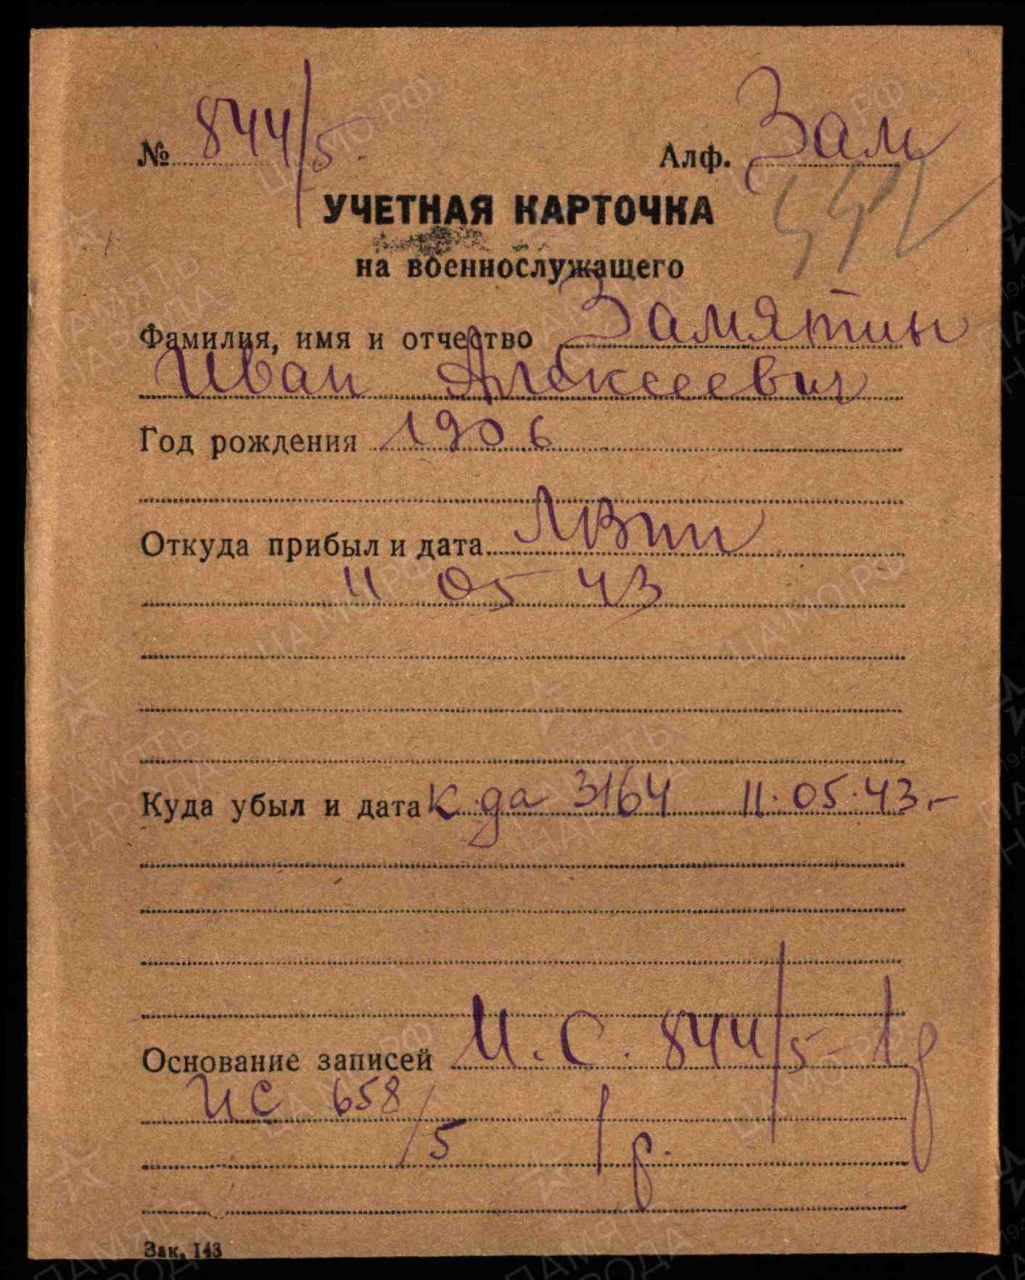 № 844/5. Алф. Зам
УЧЕТНАЯ КАРТОЧКА
на военнослужащего
Фамилия, имя и отчество Замятин
Иван Алексеевич
Год рождения 1906
Откуда прибыл и дата ЛВПП
11 05 43
Куда убыл и дата к-да 3164 11.05.43.-
Основание записей И.С. 844/5-
ИС 658/5
Зак. 143